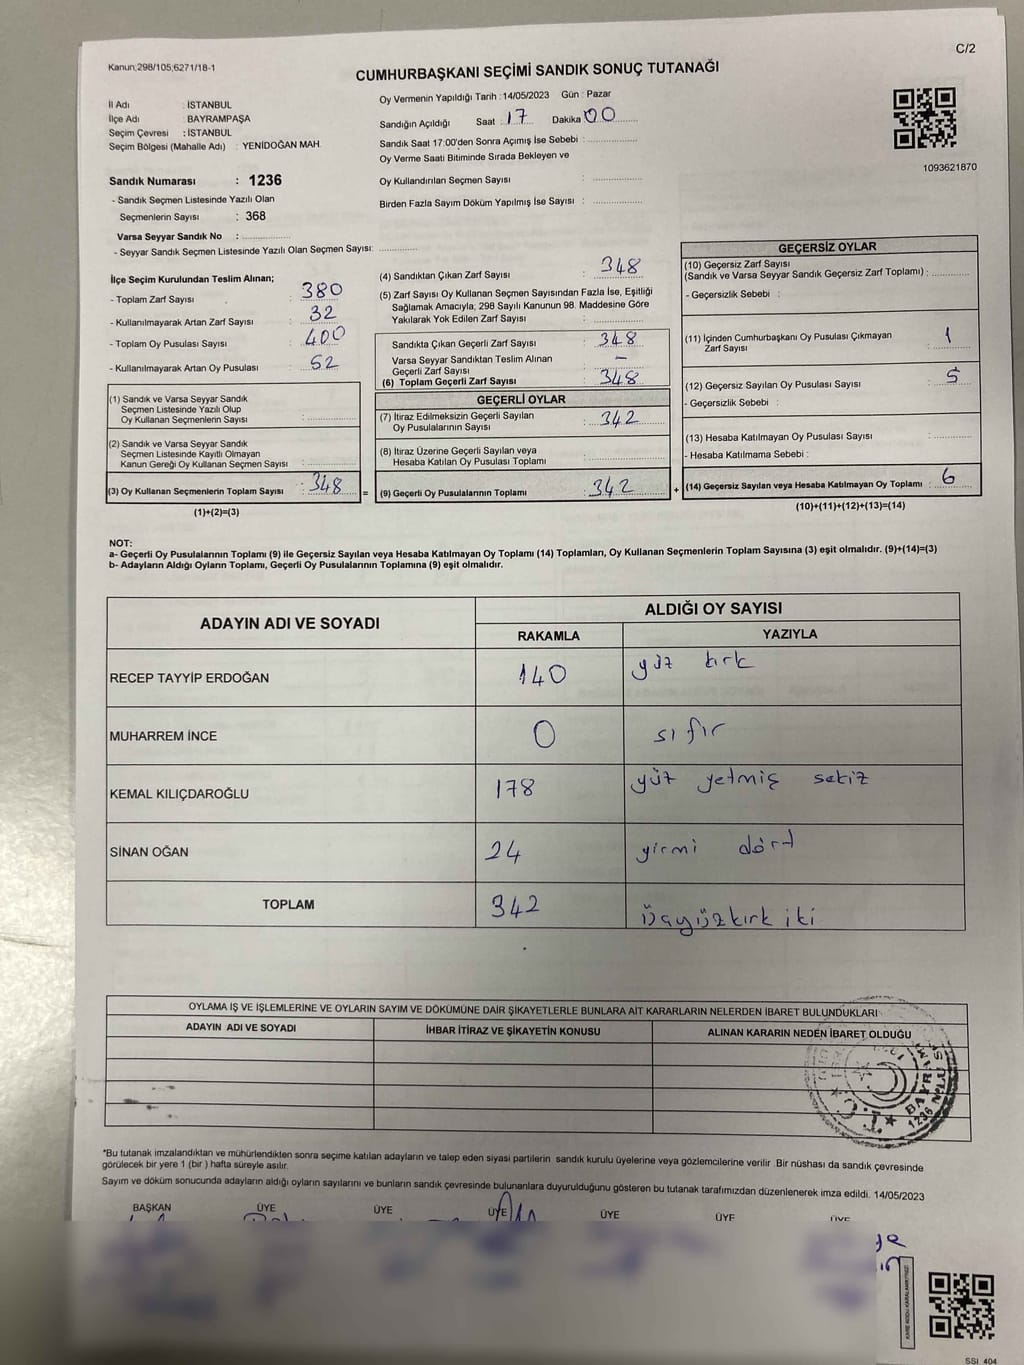 C/2
Kanun;298/105;6271/18-1
CUMHURBAŞKANI SEÇİMİ SANDIK SONUÇ TUTANAĞI
İl Adı : İSTANBUL
İlçe Adı : BAYRAMPAŞA
Seçim Çevresi : İSTANBUL
Seçim Bölgesi (Mahalle Adı) : YENİDOĞAN MAH.
Sandık Numarası : 1236
- Sandık Seçmen Listesinde Yazılı Olan
Seçmenlerin Sayısı : 368
Varsa Seyyar Sandık No :
- Seyyar Sandık Seçmen Listesinde Yazılı Olan Seçmen Sayısı:
Oy Vermenin Yapıldığı Tarih : 14/05/2023 Gün : Pazar
Sandığın Açıldığı Saat : 17 Dakika 00
Sandık Saat 17:00'den Sonra Açımış İse Sebebi :
Oy Verme Saati Bitiminde Sırada Bekleyen ve
Oy Kullandırılan Seçmen Sayısı :
Birden Fazla Sayım Döküm Yapılmış İse Sayısı :
1093621870
İlçe Seçim Kurulundan Teslim Alınan;
- Toplam Zarf Sayısı : 380
- Kullanılmayarak Artan Zarf Sayısı : 32
- Toplam Oy Pusulası Sayısı : 400
- Kullanılmayarak Artan Oy Pusulası : 52
(1) Sandık ve Varsa Seyyar Sandık
Seçmen Listesinde Yazılı Olup
Oy Kullanan Seçmenlerin Sayısı :
(2) Sandık ve Varsa Seyyar Sandık
Seçmen Listesinde Kayıtlı Olmayan
Kanun Gereği Oy Kullanan Seçmen Sayısı :
(3) Oy Kullanan Seçmenlerin Toplam Sayısı : 348
(1)+(2)=(3)
(4) Sandıktan Çıkan Zarf Sayısı : 348
(5) Zarf Sayısı Oy Kullanan Seçmen Sayısından Fazla İse, Eşitliği
Sağlamak Amacıyla; 298 Sayılı Kanunun 98. Maddesine Göre
Yakılarak Yok Edilen Zarf Sayısı :
Sandıkta Çıkan Geçerli Zarf Sayısı : 348
Varsa Seyyar Sandıktan Teslim Alınan
Geçerli Zarf Sayısı : -
(6) Toplam Geçerli Zarf Sayısı : 348
GEÇERLİ OYLAR
(7) İtiraz Edilmeksizin Geçerli Sayılan
Oy Pusulalarının Sayısı : 342
(8) İtiraz Üzerine Geçerli Sayılan veya
Hesaba Katılan Oy Pusulası Toplamı :
= (9) Geçerli Oy Pusulalarının Toplamı : 342
GEÇERSİZ OYLAR
(10) Geçersiz Zarf Sayısı
(Sandık ve Varsa Seyyar Sandık Geçersiz Zarf Toplamı) :
- Geçersizlik Sebebi :
(11) İçinden Cumhurbaşkanı Oy Pusulası Çıkmayan
Zarf Sayısı : 1
(12) Geçersiz Sayılan Oy Pusulası Sayısı : 5
- Geçersizlik Sebebi :
(13) Hesaba Katılmayan Oy Pusulası Sayısı :
- Hesaba Katılmama Sebebi :
+ (14) Geçersiz Sayılan veya Hesaba Katılmayan Oy Toplamı : 6
(10)+(11)+(12)+(13)=(14)
NOT:
a- Geçerli Oy Pusulalarının Toplamı (9) ile Geçersiz Sayılan veya Hesaba Katılmayan Oy Toplamı (14) Toplamları, Oy Kullanan Seçmenlerin Toplam Sayısına (3) eşit olmalıdır. (9)+(14)=(3)
b- Adayların Aldığı Oyların Toplamı, Geçerli Oy Pusulalarının Toplamına (9) eşit olmalıdır.
ADAYIN ADI VE SOYADI
ALDIĞI OY SAYISI
RAKAMLA YAZIYLA
RECEP TAYYİP ERDOĞAN 140 yüz kırk
MUHARREM İNCE 0 sıfır
KEMAL KILIÇDAROĞLU 178 yüz yetmiş sekiz
SİNAN OĞAN 24 yirmi dört
TOPLAM 342 üçyüzkırk iki
OYLAMA İŞ VE İŞLEMLERİNE VE OYLARIN SAYIM VE DÖKÜMÜNE DAİR ŞİKAYETLERLE BUNLARA AİT KARARLARIN NELERDEN İBARET BULUNDUKLARI
ADAYIN ADI VE SOYADI İHBAR İTİRAZ VE ŞİKAYETİN KONUSU ALINAN KARARIN NEDEN İBARET OLDUĞU
*Bu tutanak imzalandıktan ve mühürlendikten sonra seçime katılan adayların ve talep eden siyasi partilerin sandık kurulu üyelerine veya gözlemcilerine verilir .Bir nüshası da sandık çevresinde
görülecek bir yere 1 (bir ) hafta süreyle asılır.
Sayım ve döküm sonucunda adayların aldığı oyların sayılarını ve bunların sandık çevresinde bulunanlara duyurulduğunu gösteren bu tutanak tarafımızdan düzenlenerek imza edildi. 14/05/2023
BAŞKAN ÜYE ÜYE ÜYE ÜYE ÜYE ÜYE
SSI 404